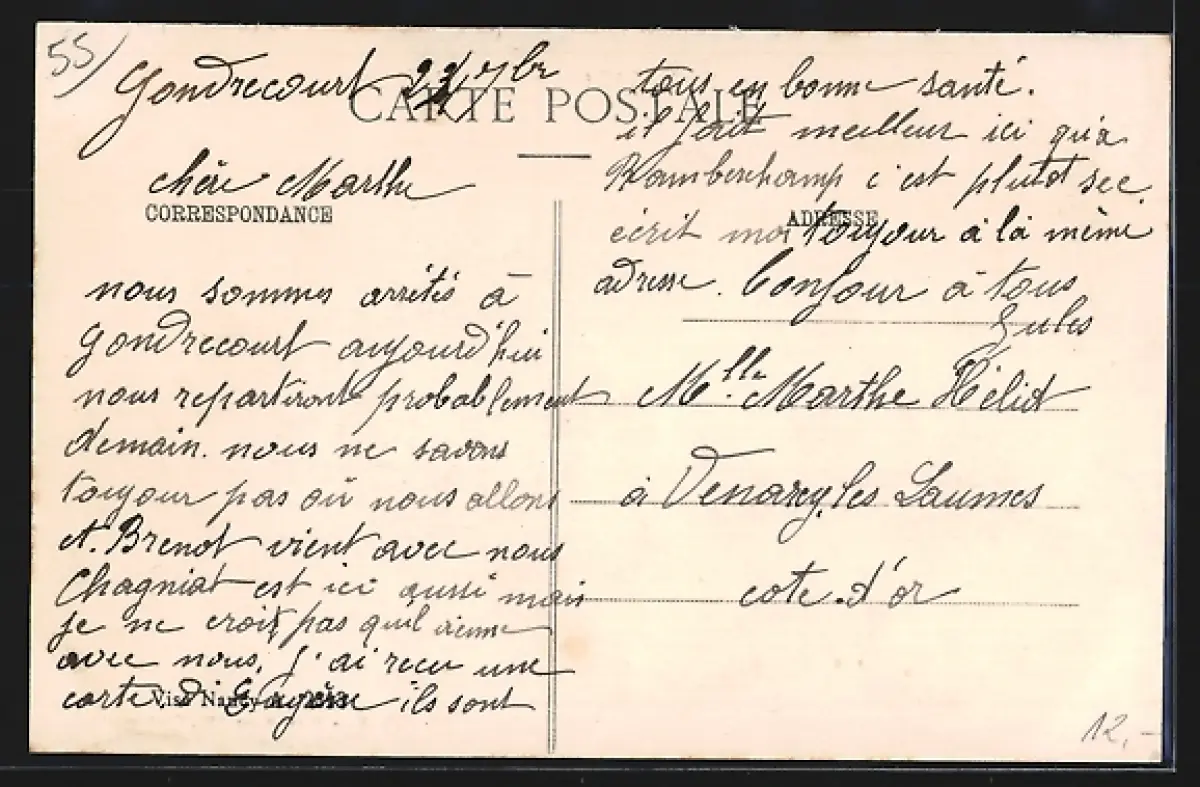 55)
Gondrecourt 7bre
CARTE POSTALE
chère Marthe
CORRESPONDANCE
nous sommes arrétés à
gondrecourt aujourd'hui
nous repartiront probablement
demain. nous ne savons
toujour pas où nous allons
et. Brenot vient avec nous
Chagniat est ici aussi mais
je ne crois pas qu'il vienne
avec nous. j'ai recu une
carte d'Eugène ils sont
Visé Nancy
tous en bonne santé.
il fait meilleur ici qu'a
Ramberchamp c'est plutot sec
ADRESSE
écrit moi toujour à la même
adresse. Bonjour à tous
Jules
Mlle Marthe Héliot
à Venarey les Laumes
cote-d'or
12,-